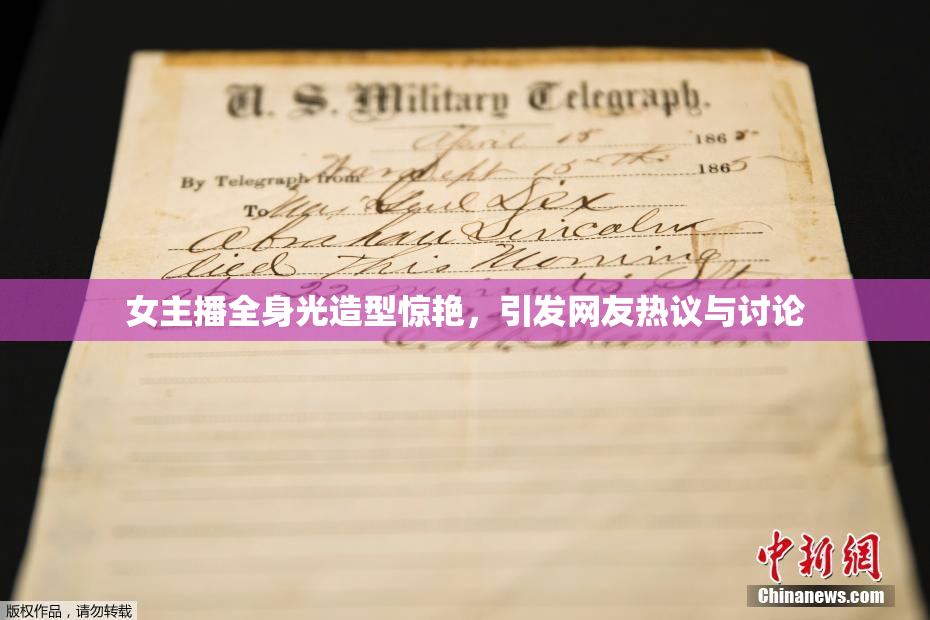 U. S. Military Telegraph.
April 15 1865
By Telegraph from War Dept 15th 1865
To Maj Genl Dix
Abraham Lincoln
died This Morning
at 22 minutes after
女主播全身光造型惊艳，引发网友热议与讨论
E. M. Stanton
中新网
Chinanews.com
版权作品，请勿转载